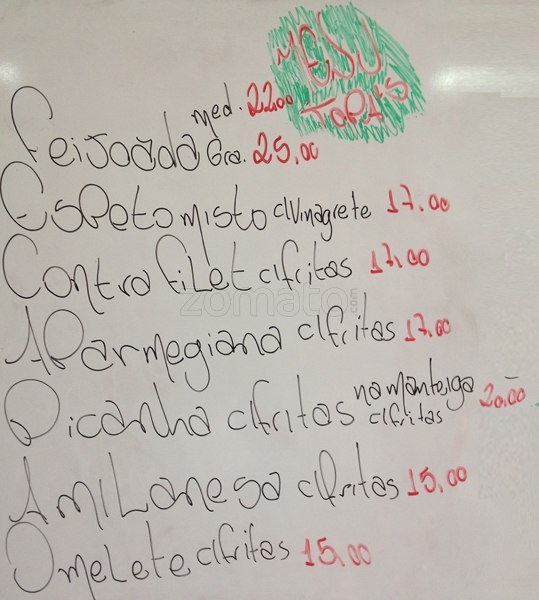 MESU
TOPA'S
med. 22.00
Feijoada Gra. 25,00
Espeto misto c/vinagrete 17.00
Contra filet c/fritas 17,00
A Parmegiana c/fritas 17.00
na manteiga
Picanha c/fritas c/fritas 20.00
A milanesa c/fritas 15,00
Omelete c/fritas 15.00
zomato.com